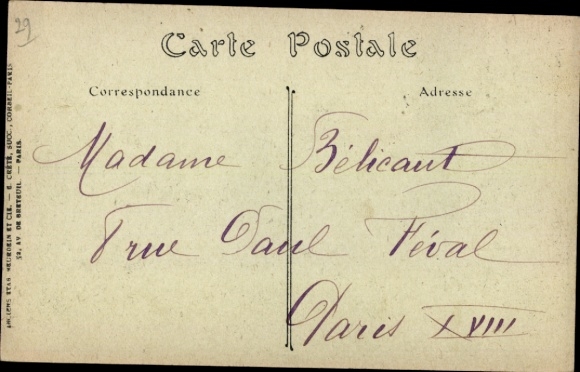 29
Carte Postale
Correspondance
Adresse
Madame Bélicant
8 rue Paul Féval
Paris XVIII
ANCIENS ETAB. NEURDEIN ET CIE. — E. CRÉTÉ, SUCC., CORBEIL-PARIS
52, AV. DE BRETEUIL. — PARIS.